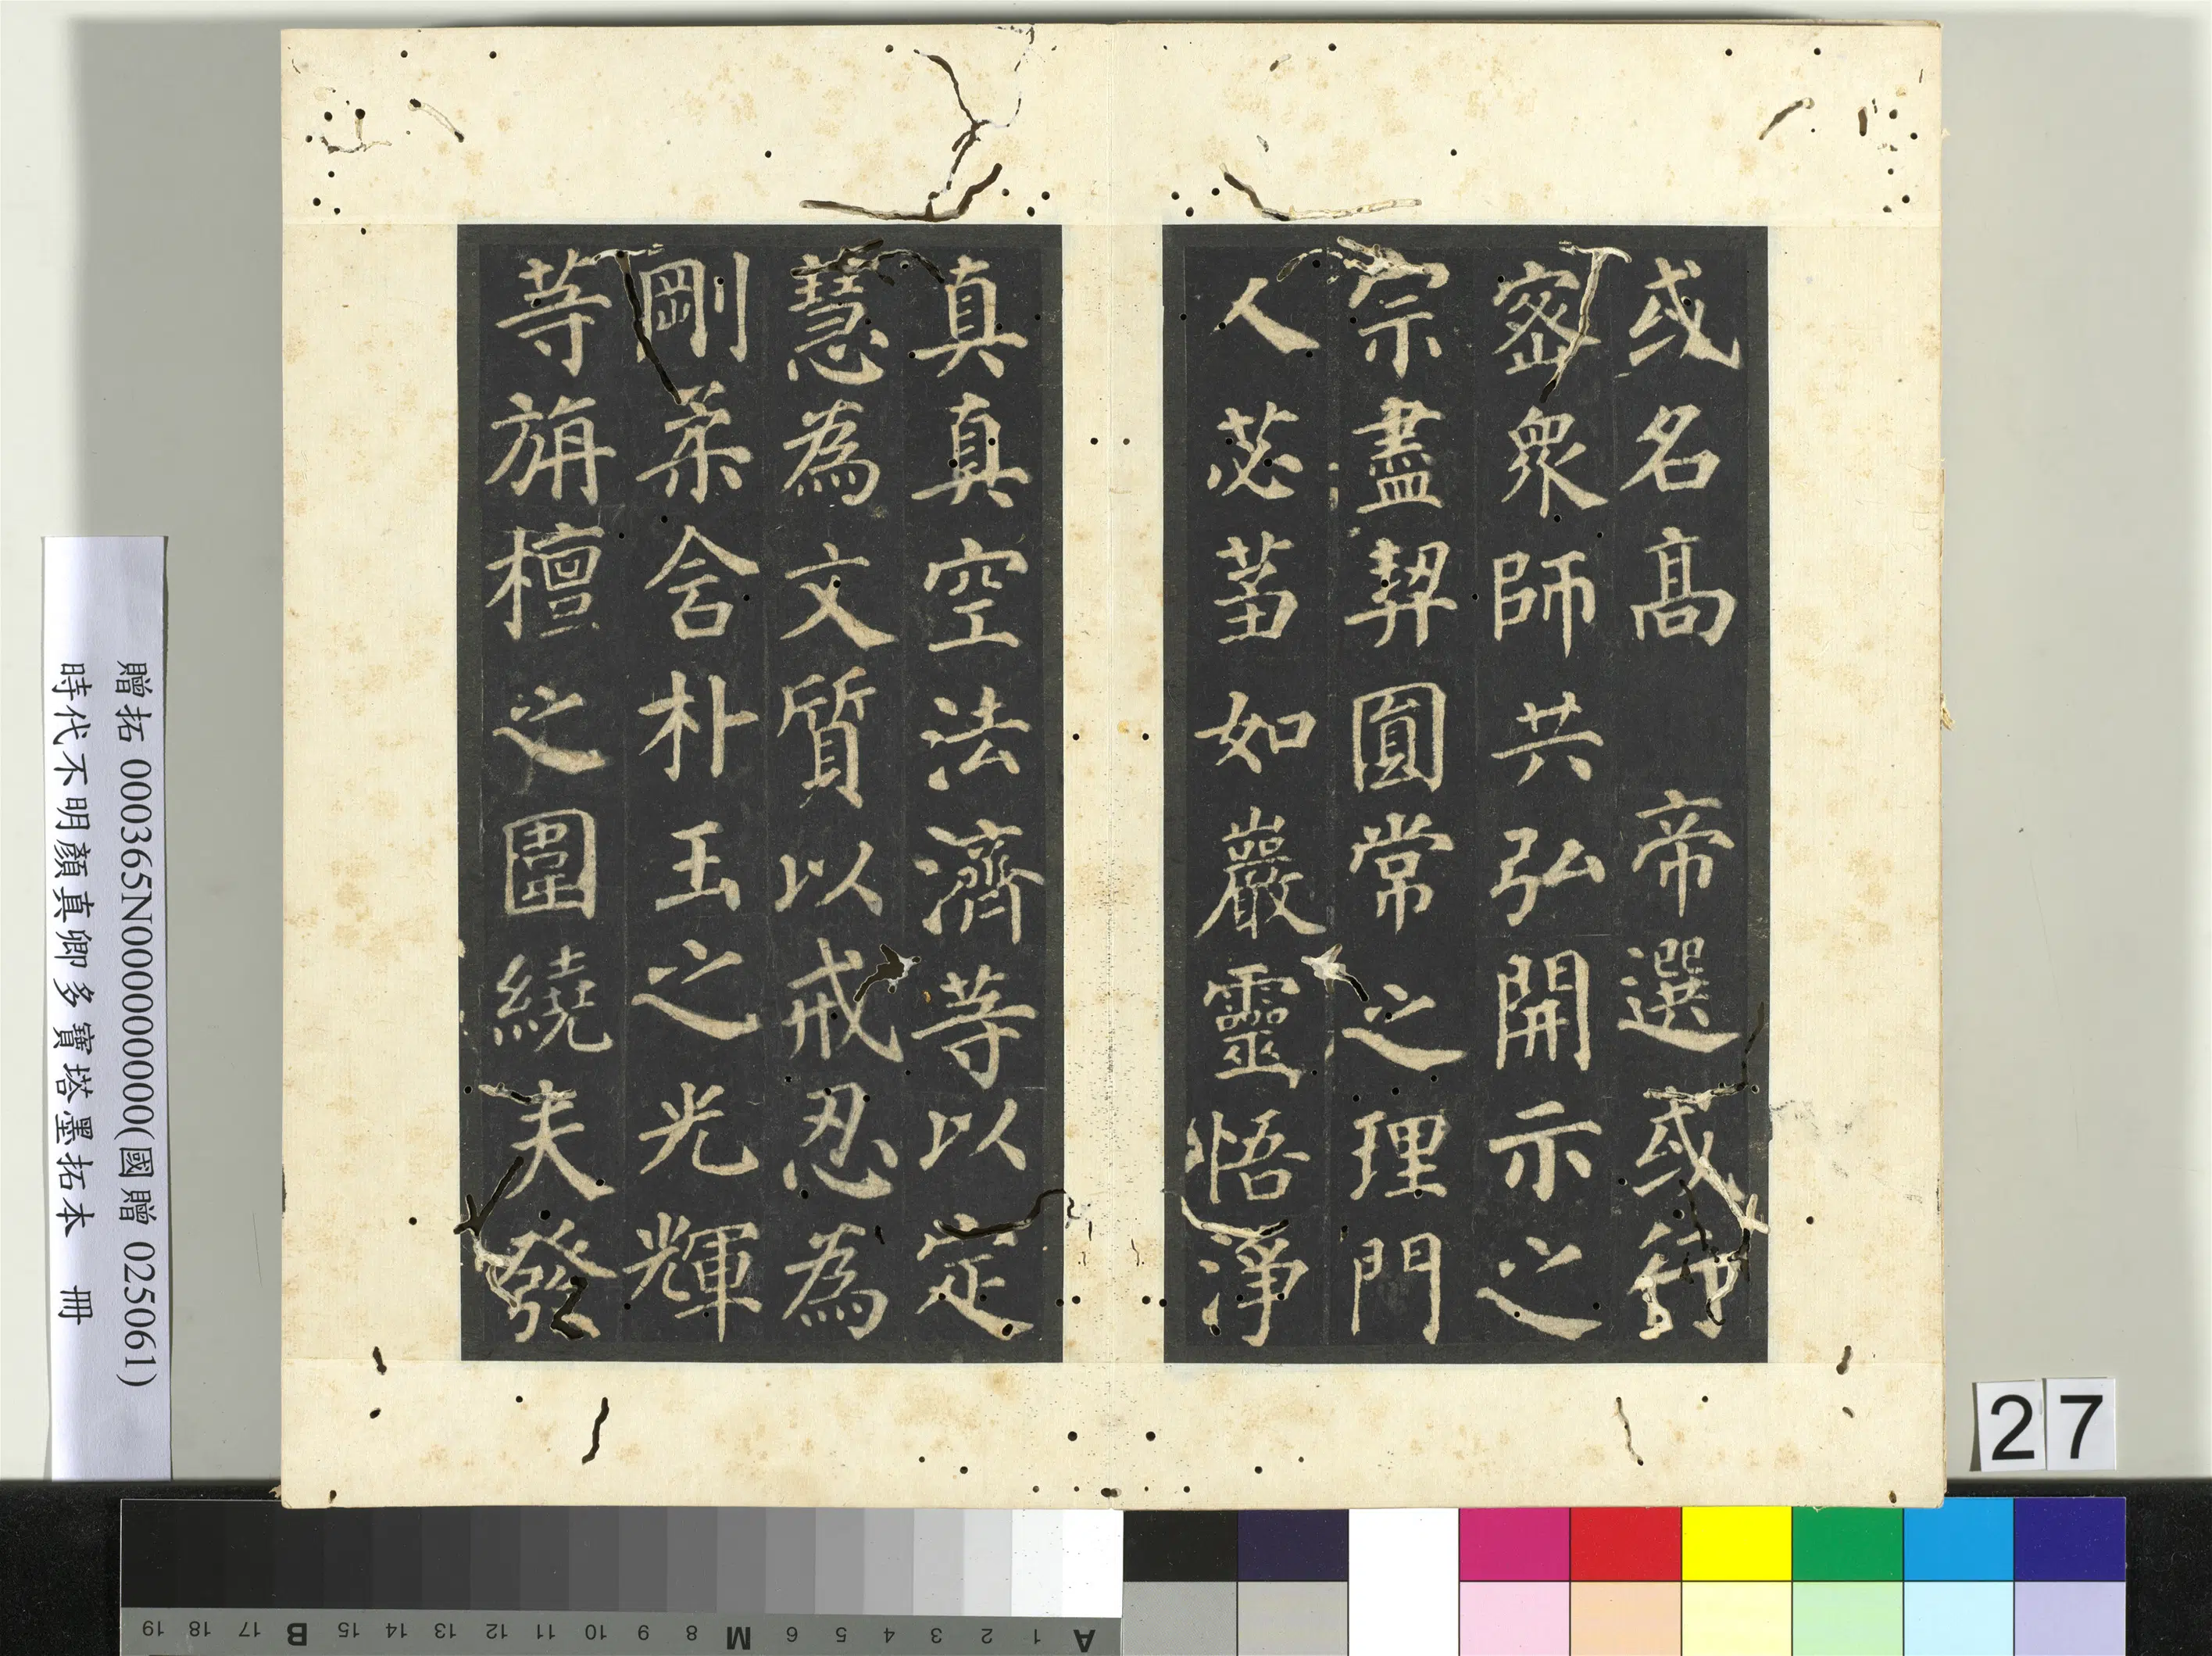 或名高 帝選或行
密衆師共弘開示之
宗盡契圓常之理門
人苾蒭如巖靈悟淨
真真空法濟等以定
慧為文質以戒忍為
剛柔含朴玉之光輝
等旃檀之圍繞夫發
贈拓 000365N000000000(國贈 025061)
時代不明顏真卿多寶塔墨拓本 冊
27
A 1 2 3 4 5 6 M 8 9 10 11 12 13 14 15 B 17 18 19